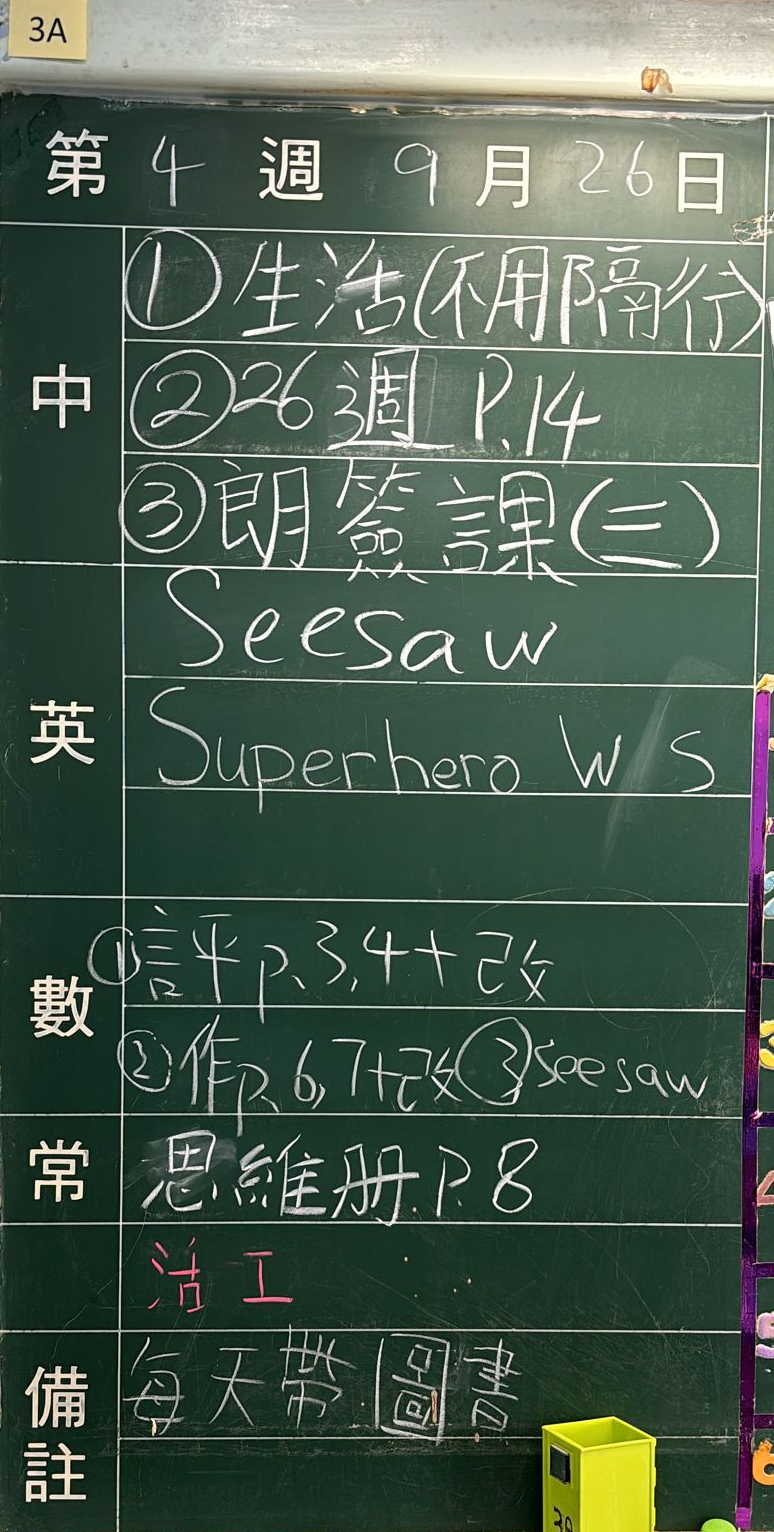 3A
第 4 週 9 月 26 日
中
①生活(不用隔行)
②26週 P.14
③朗簽課(二)
英
Seesaw
Superhero W S
數
①評P.3,4+改
②作P.6,7+改③seesaw
常
思維册.P.8
活工
備註
每天帶圖書
3A